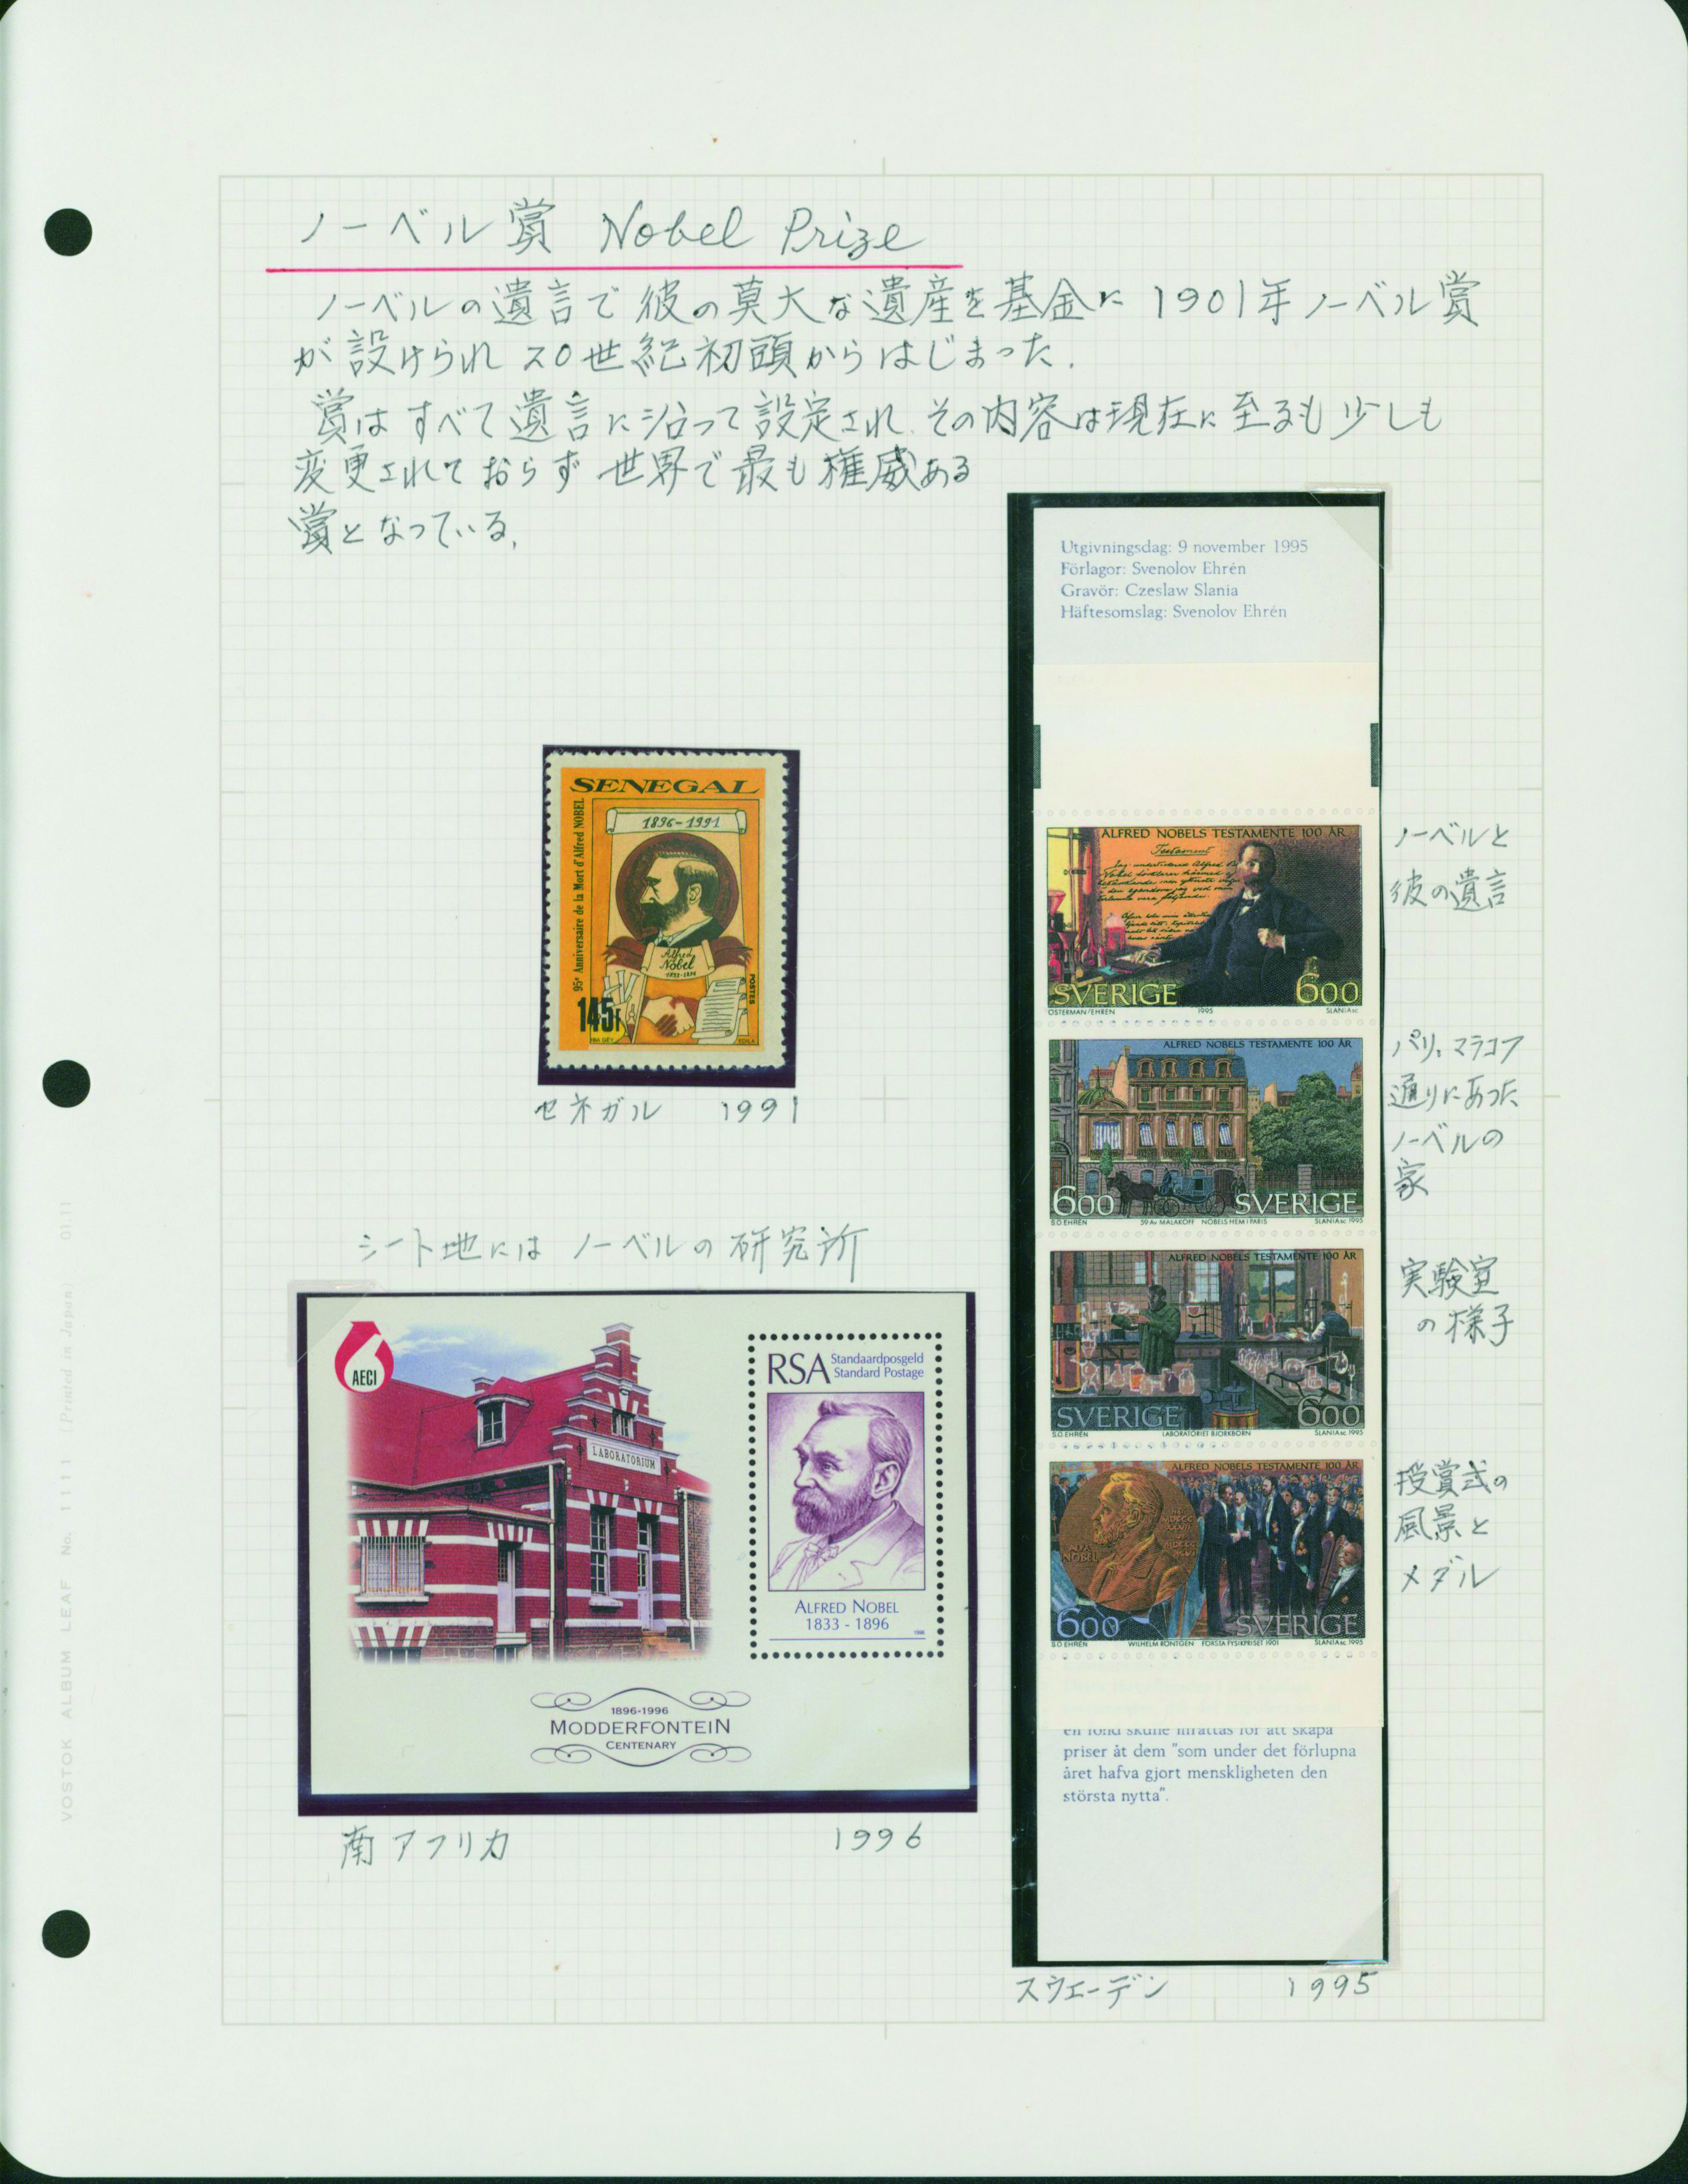 ノーベル賞 Nobel Prize
ノーベルの遺言で彼の莫大な遺産を基金に1901年ノーベル賞
が設けられ20世紀初頭からはじまった.
賞はすべて遺言に沿って設定され その内容は現在に至るも少しも
変更されておらず世界で最も権威ある
賞となっている.
Utgivningsdag: 9 november 1995
Förlagor: Svenolov Ehrén
Gravör: Czeslaw Slania
Häftesomslag: Svenolov Ehrén
SENEGAL
1896-1991
95e Anniversaire de la Mort d'Alfred NOBEL
Alfred
Nobel
1833-1896
POSTES
145F
EDILA
セネガル 1991
ALFRED NOBELS TESTAMENTE 100 ÅR
Testament
SVERIGE 600
ÖSTERMAN/EHRÉN 1995 SLANIA sc
ノーベルと
彼の遺言
ALFRED NOBELS TESTAMENTE 100 ÅR
600 SVERIGE
S.O. EHRÉN 59 AV MALAKOFF NOBELS HEM I PARIS SLANIA sc 1995
パリ、マラコフ
通りにあった
ノーベルの
家
ALFRED NOBELS TESTAMENTE 100 ÅR
SVERIGE 600
S.O. EHRÉN LABORATORIET BJÖRKBORN SLANIA sc 1995
実験室
の様子
ALFRED NOBELS TESTAMENTE 100 ÅR
NOBEL
600 SVERIGE
S.O. EHRÉN WILHELM RÖNTGEN FÖRSTA FYSIKPRISET 1901 SLANIA sc 1995
授賞式の
風景と
メダル
en fond skulle inrättas för att skapa
priser åt dem "som under det förlupna
året hafva gjort menskligheten den
största nytta".
スウェーデン 1995
シート地には ノーベルの研究所
AECI
LABORATORIUM
RSA Standaardposgeld
Standard Postage
ALFRED NOBEL
1833 - 1896
1996
1896-1996
MODDERFONTEIN
CENTENARY
南アフリカ 1996
VOSTOK ALBUM LEAF No. 1111 (Printed in Japan) 01.11